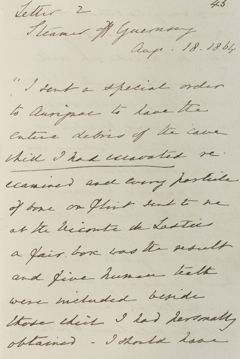 Letter 2 43
Steamer off Guernsey
Aug. 18. 1864
"I sent a special order
to Aurignac to have the
entire debris of the cave
which I had excavated re-
examined and every particle
of bone or flint sent to me
at the Vicomte de Lastic's
a fair box was the result
and five human teeth
were included beside
those which I had personally
obtained - I should have